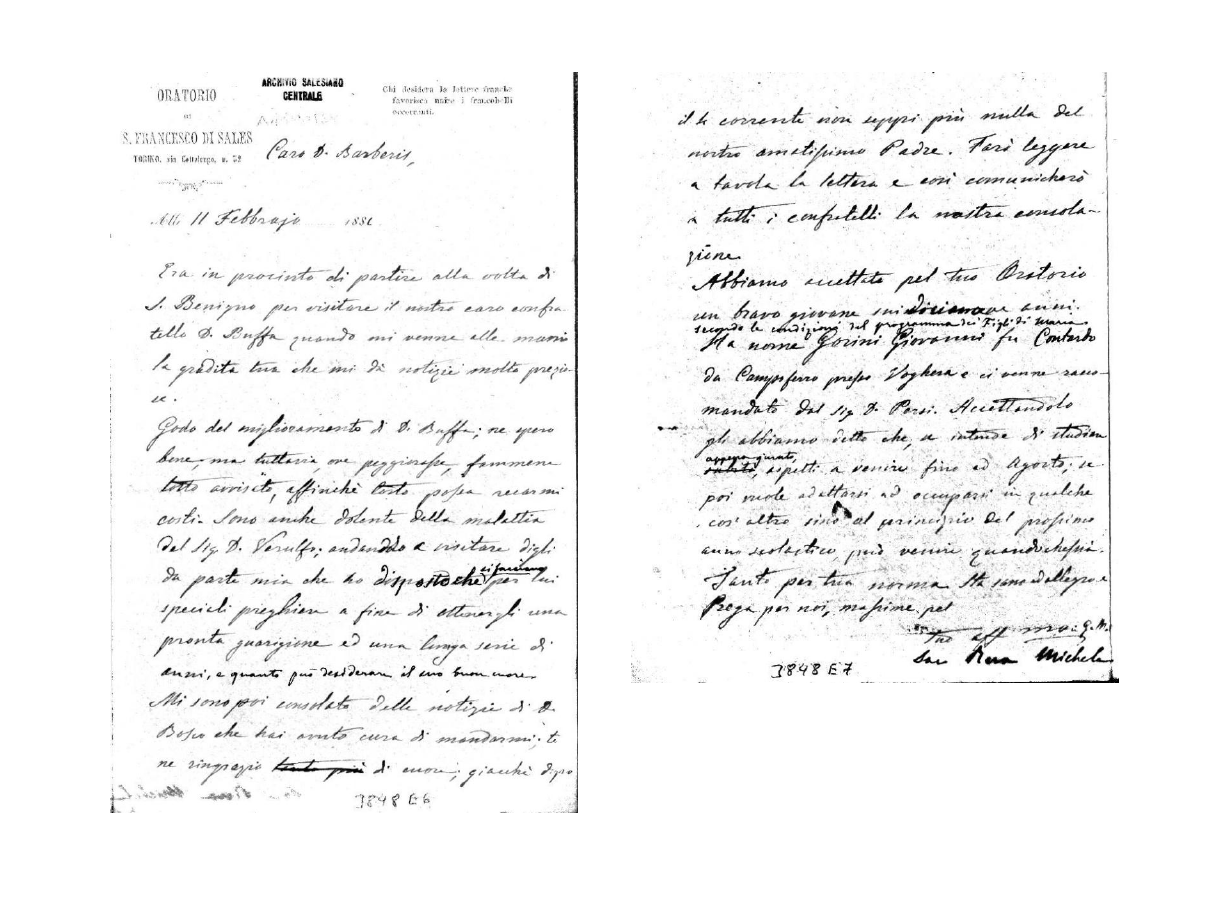 ORATORIO
DI
S. FRANCESCO DI SALES
TORINO, via Cottolengo, n. 32
ARCHIVIO SALESIANO
CENTRALE
Chi desidera le lettere franche
favorisca unire i francobolli
occorrenti.
Caro D. Barberis,
Addì 11 Febbrajo 188
Era in procinto di partire alla volta di
S. Benigno per visitare il nostro caro confra
tello D. Buffa quando mi venne alle mani
la gradita tua che mi dà notizie molto prezio-
se.
Godo del miglioramento di D. Buffa; ne spero
bene, ma tuttavia, ove peggiorasse, fammene
tosto avvisato, affinchè tosto possa recarmi
costì. Sono anche dolente della malattia
del Sig. D. Verulfo; andando a visitare digli
da parte mia che ho disposto chè si facciano per lui
speciali preghiere a fine di ottenergli una
pronta guarigione ed una lunga serie di
anni, e quanto può desiderare il suo buon cuore.
Mi sono poi consolato delle notizie di D.
Bosco che hai avuto cura di mandarmi; te
ne ringrazio tanto più di cuore; giacchè dopo
3848 E6
il corrente non seppi più nulla del
nostro amatissimo Padre. Farò leggere
a tavola la lettera e così comunicherò
a tutti i confratelli la nostra consola-
zione.
Abbiamo accettato pel tuo Oratorio
un bravo giovane sui diciannove anni
secondo le condizioni del programma dei Figli di Maria
Ha nome Gorini Giovanni fu Contardo
da Campoferro presso Voghera e ci venne racco-
mandato dal Sig. D. Persi. Accettandolo
gli abbiamo detto che, se intende di studiare
appena giunto, aspetti a venire fino ad Agosto; se
poi vuole adattarsi ad occuparsi in qualche
cos' altro sino al principio del prossimo
anno scolastico, può venire quandochessia.
Tanto per tua norma. Sta sano ed allegro e
Prega per noi, massime pel
tuo aff.mo in G. M.
Sac Rua Michele
3848 E7